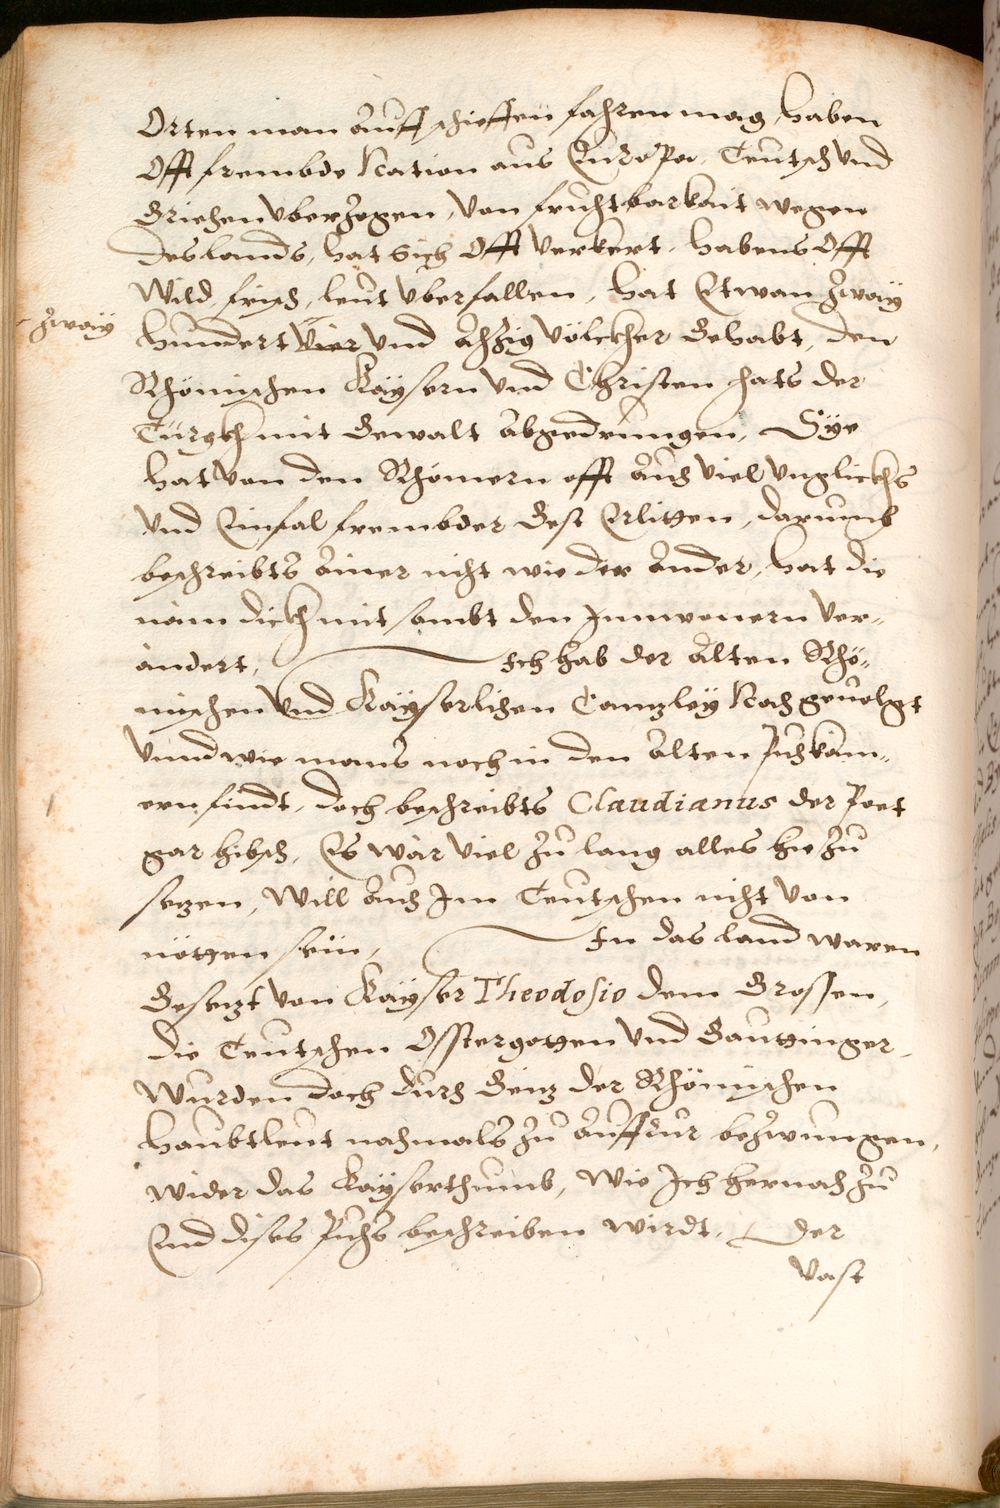 Orten man auff schieffen fahren mag, haben
Offt frembde Nation aus Europa, Teutsch vnd
Griehen vberzogen, von fruchtbarkait wegen
des lands, hat sich offt verkert, habens offt
Wild, frisch, leut vberfallen, hat Etwan zway
zway
hundert vier vnd achzig völckher Gehabt, den
Rhömischen Kaysern vnd Christen hats der
Türgkh mit Gewalt abgedrungen, Sye
hat von den Rhömern offt auch viel vnglickhs
vnd Einfal frembder Gest Erlitten, darumb
beschreibts ainer nicht wie der ander, hat die
näm dickh mit sambt den Innwonern ver-
ändert, Ich hab der alten Rhö-
mischen vnd Kayserlichen Cantzley Nach geuolgt
vnnd wie mans noch in den alten Puchkam-
ern findt, doch beschreibts Claudianus der Poet
gar hibsch, Es wär viel zu lang alles hie zu
setzen, Will auch Im Teutschen nicht von
nötten sein, In das land waren
Gesetzt von Kayser Theodosio dem Grossen,
die Teutschen Ostergotten vnd Gauttinger,
Wurden doch durch Geitz der Rhömischen
Haubtleut nachmals zu auffrur bezwungen,
wider das Kayserthumb, Wie Ich hernach zu
End dises Puchs beschreiben wirdt, Der
vast